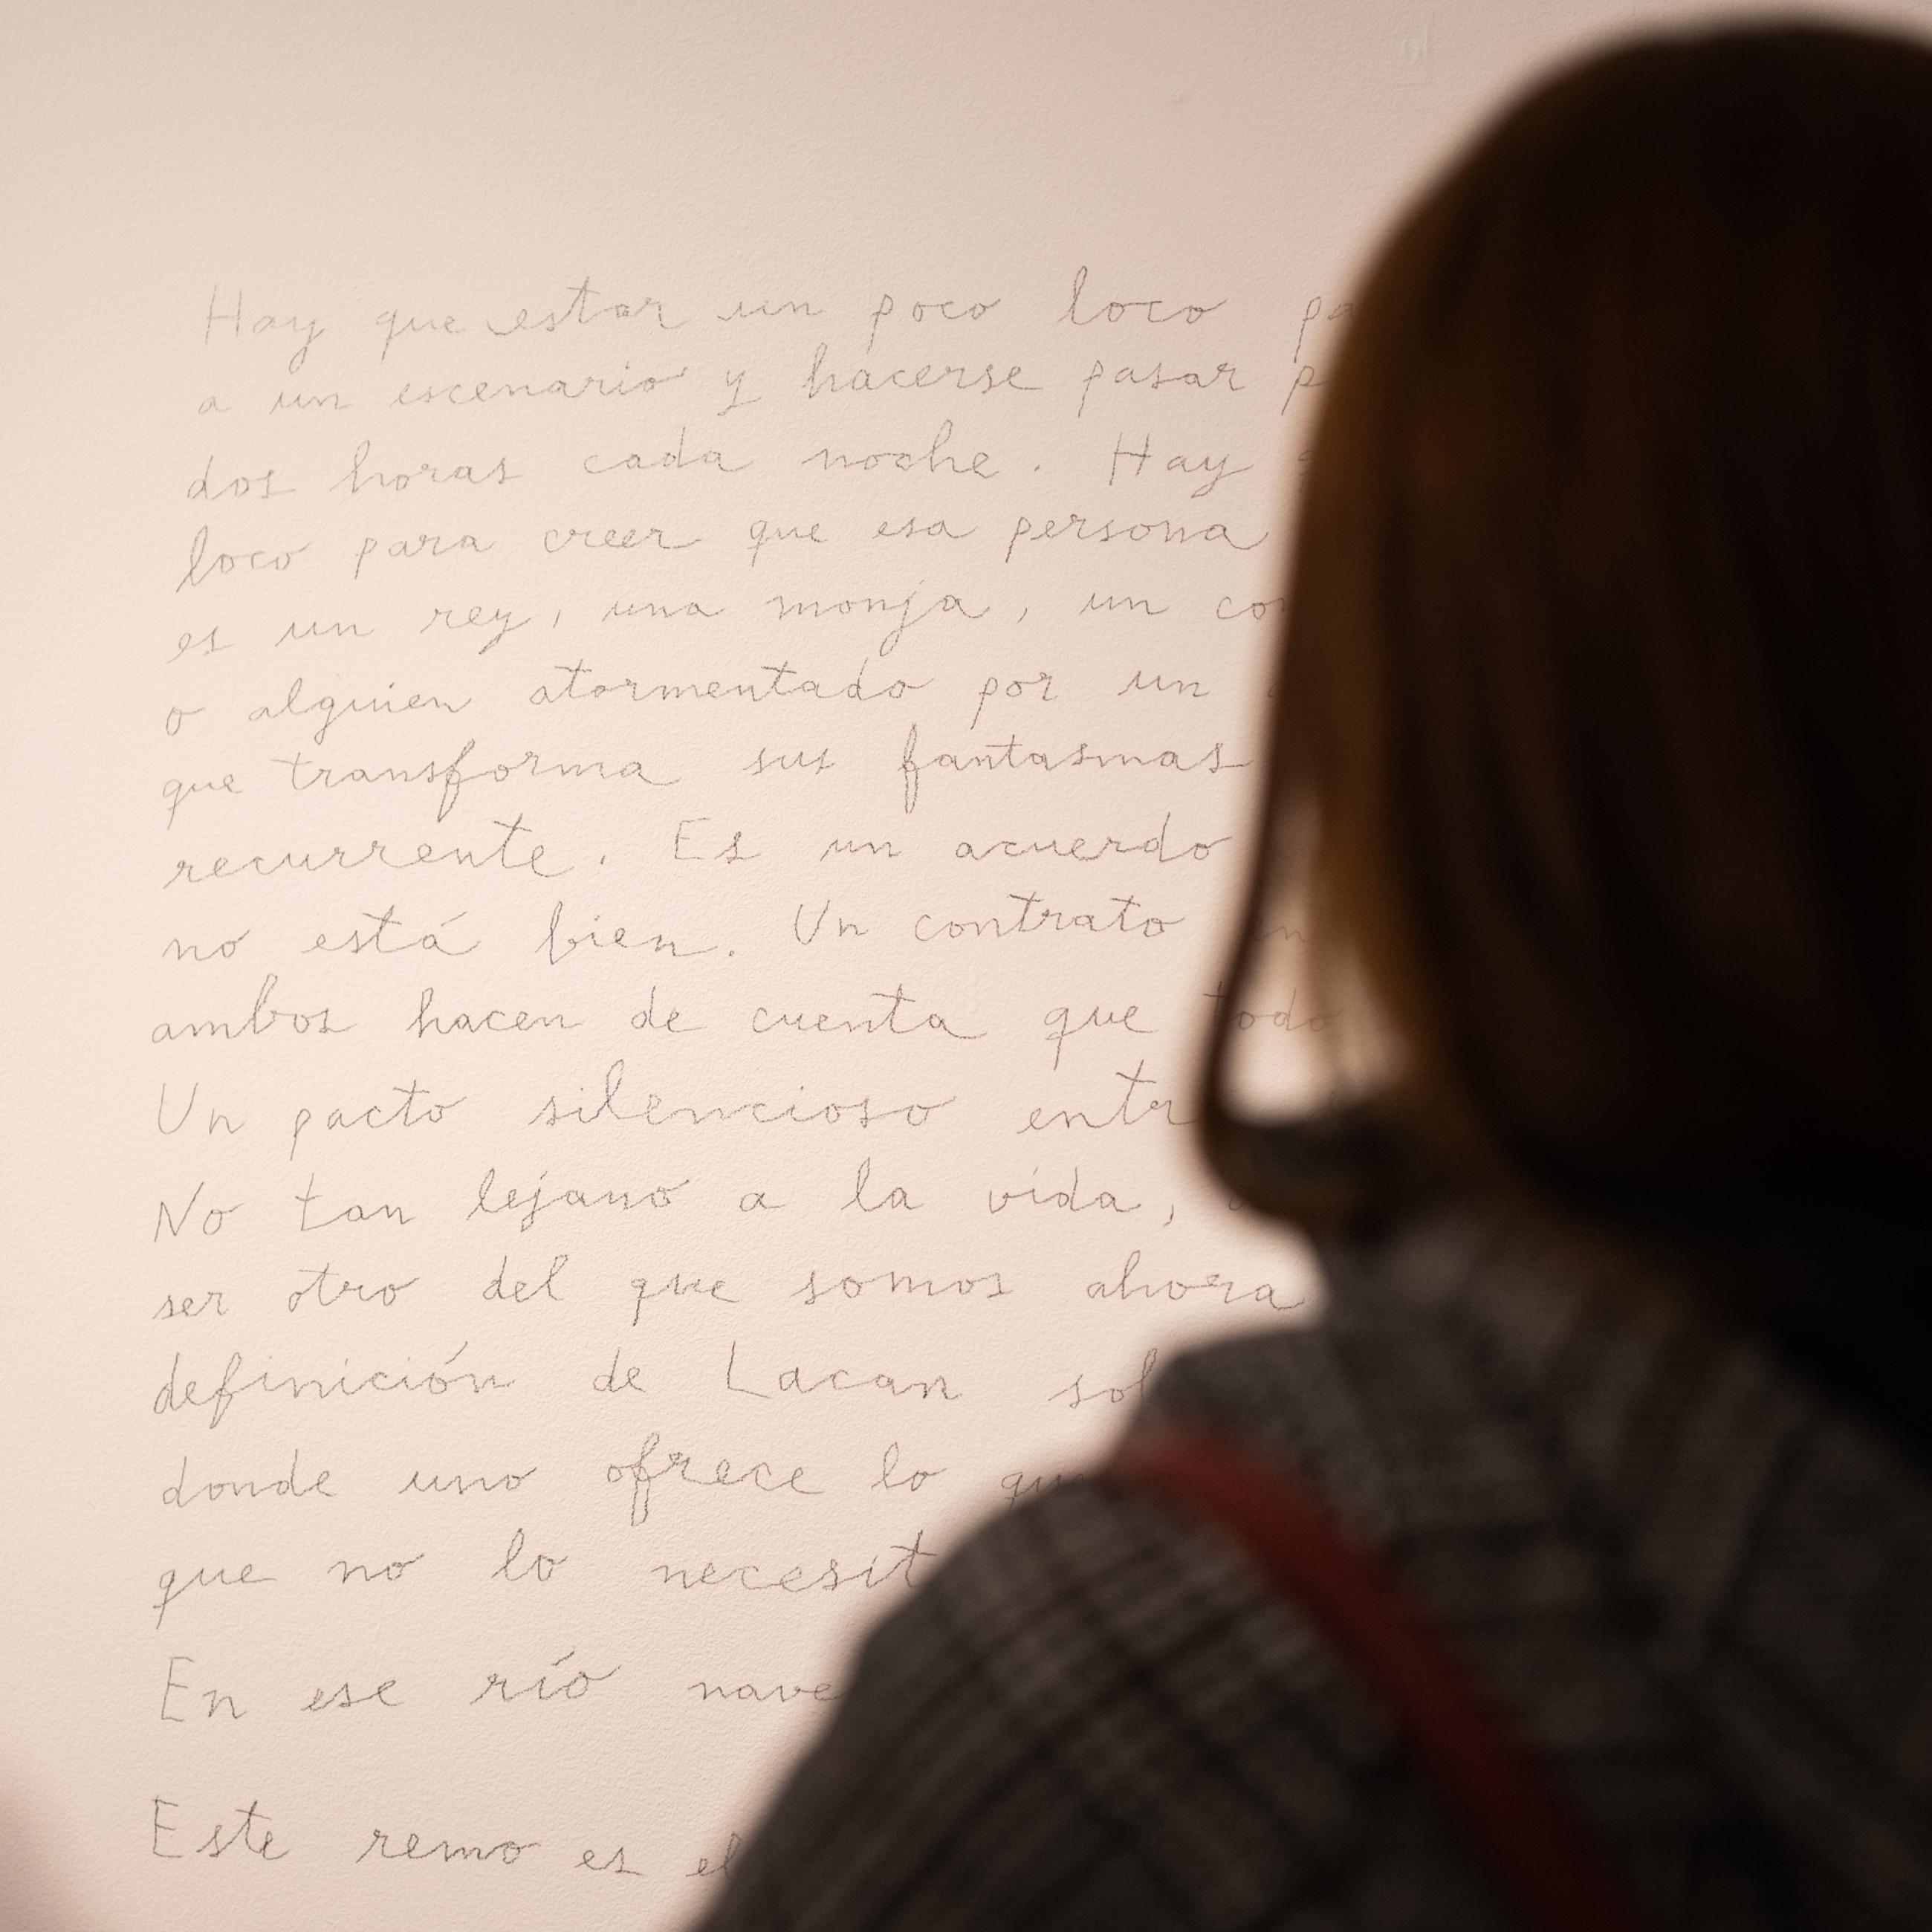 Hay que estar un poco loco
a un escenario y hacerse pasar
dos horas cada noche. Hay
loco para creer que esa persona
es un rey, una monja, un
o alguien atormentado por un
que transforma sus fantasmas
recurrente. Es un acuerdo
no está bien. Un contrato
ambos hacen de cuenta que todo
Un pacto silencioso
No tan lejano a la vida,
ser otro del que somos ahora
definición de Lacan
donde uno ofrece lo
que no lo
En ese río
Este remo es